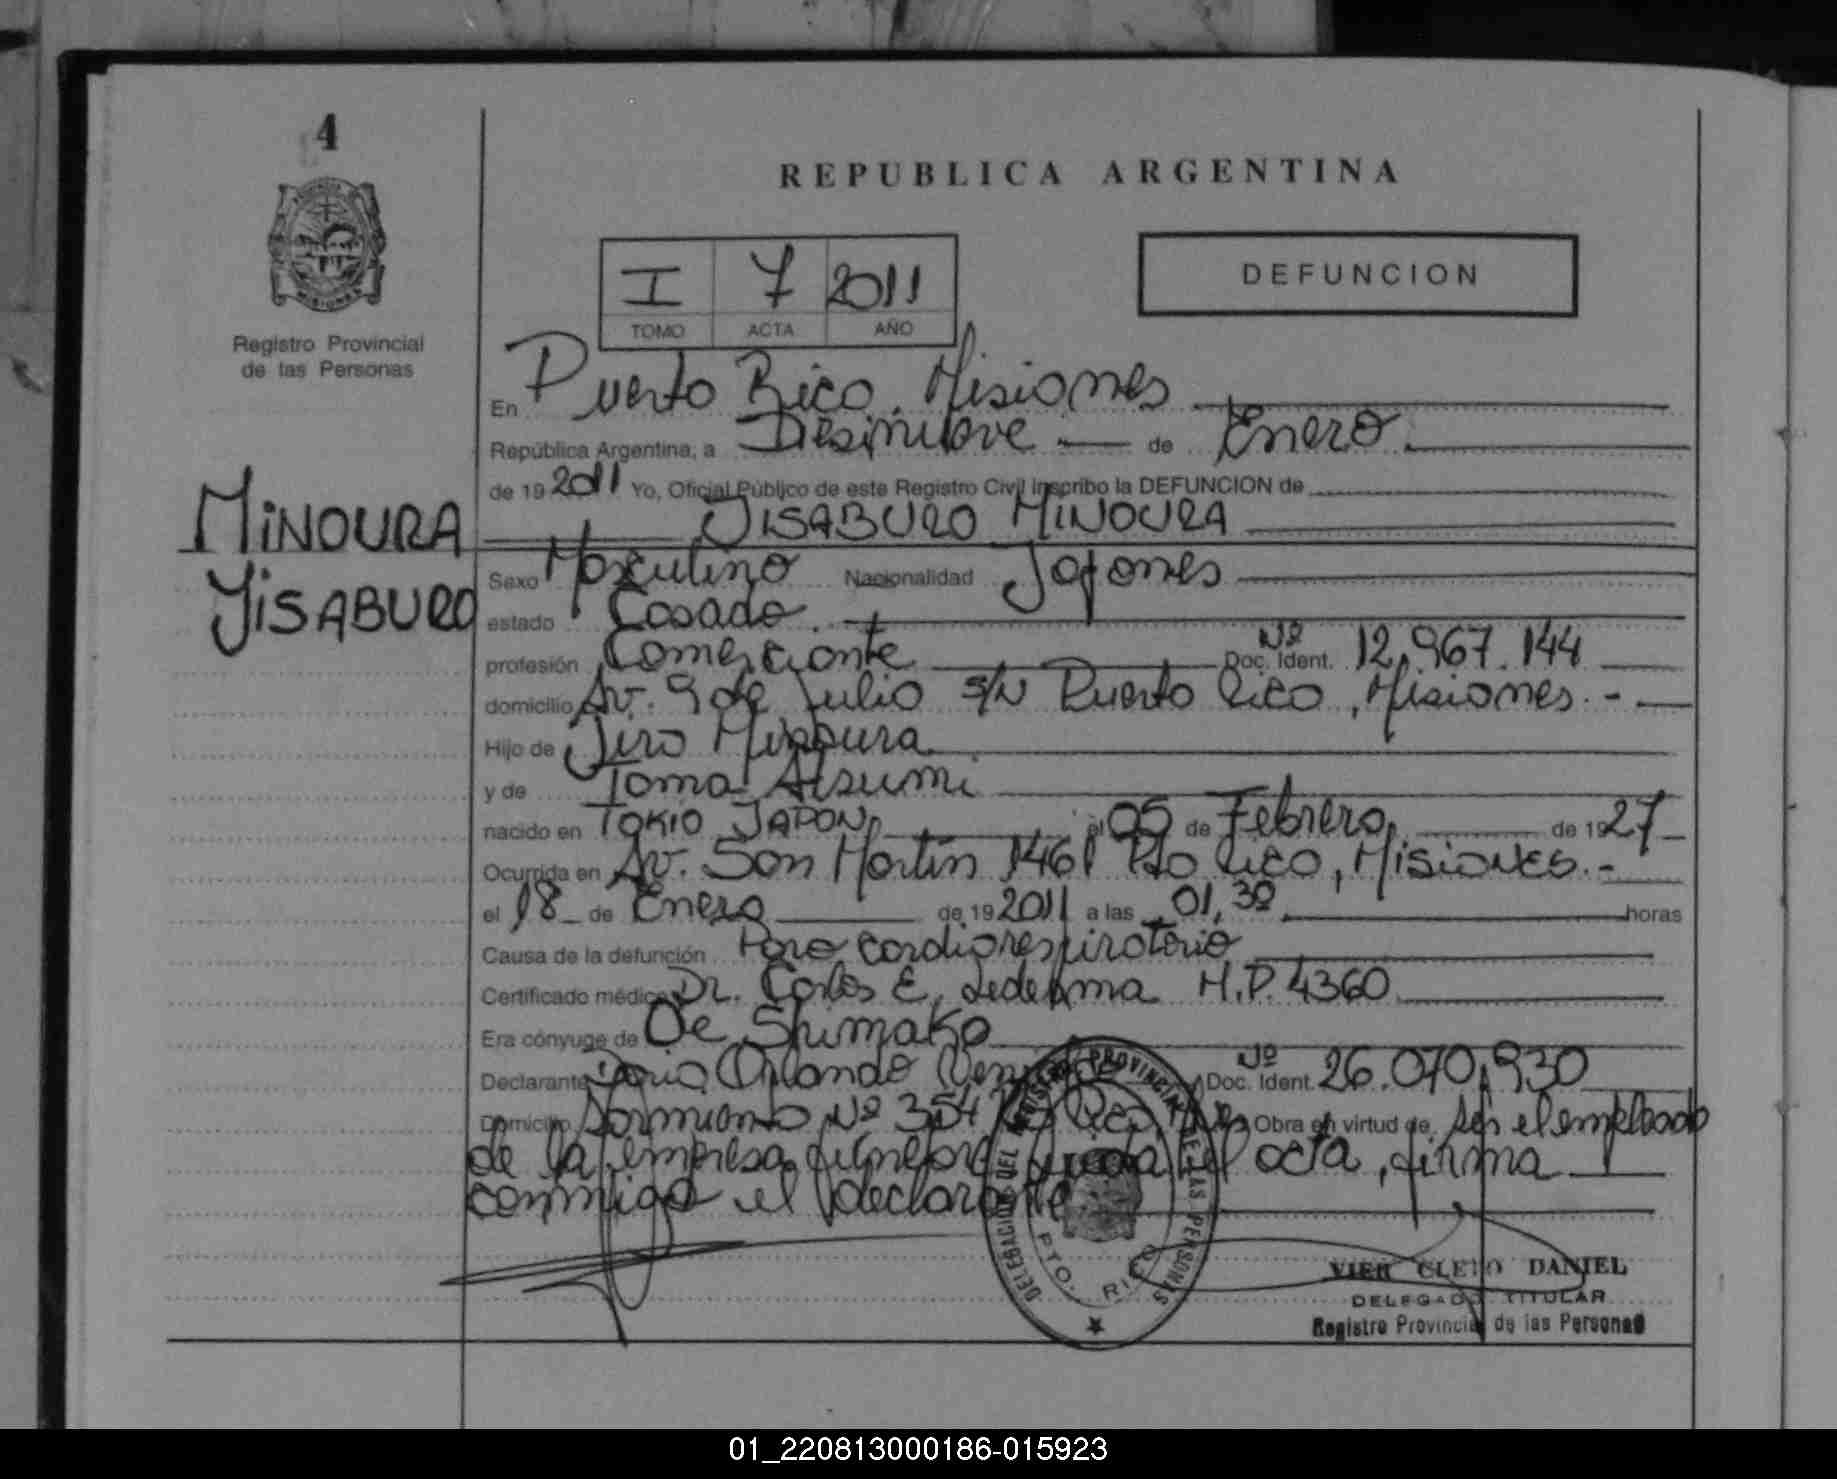 4
REPUBLICA ARGENTINA
MISIONES
Registro Provincial
de las Personas
I 7 2011
TOMO ACTA AÑO
DEFUNCION
En Puerto Rico, Misiones
República Argentina, a Diesinueve de Enero
de 19 2011 Yo, Oficial Público de este Registro Civil inscribo la DEFUNCION de
JISABURO MINOURA
MINOURA
JISABURO
Sexo Masculino Nacionalidad Japones
estado Casado
profesión Comerciante Nº Doc. Ident. 12.967.144
domicilio Av. 9 de Julio s/N Puerto Rico, Misiones.-
Hijo de Jiro Minoura
y de Toma
nacido en TOKIO JAPON, el 05 de Febrero, de 1927
Ocurrida en Av. San Martin 1461 Pto Rico, MISIONES.-
el 18 de Enero de 19 2011 a las 01,30 horas
Causa de la defunción Paro cardiorespiratorio
Certificado médico Dr. Carlos E. Ledesma M.P. 4360
Era cónyuge de De Shimako
Declarante Orlando Nº Doc. Ident. 26.070.930
Domicilio Sarmiento Nº 354 Pto Rico, Obra en virtud de ser el empleado
de la empresa acta, firma
conmigo el declarante
DELEGACION DEL REGISTRO PROVINCIAL DE LAS PERSONAS
PTO. RICO
VIER CLETO DANIEL
DELEGADO TITULAR
Registro Provincial de las Personas
01_220813000186-015923